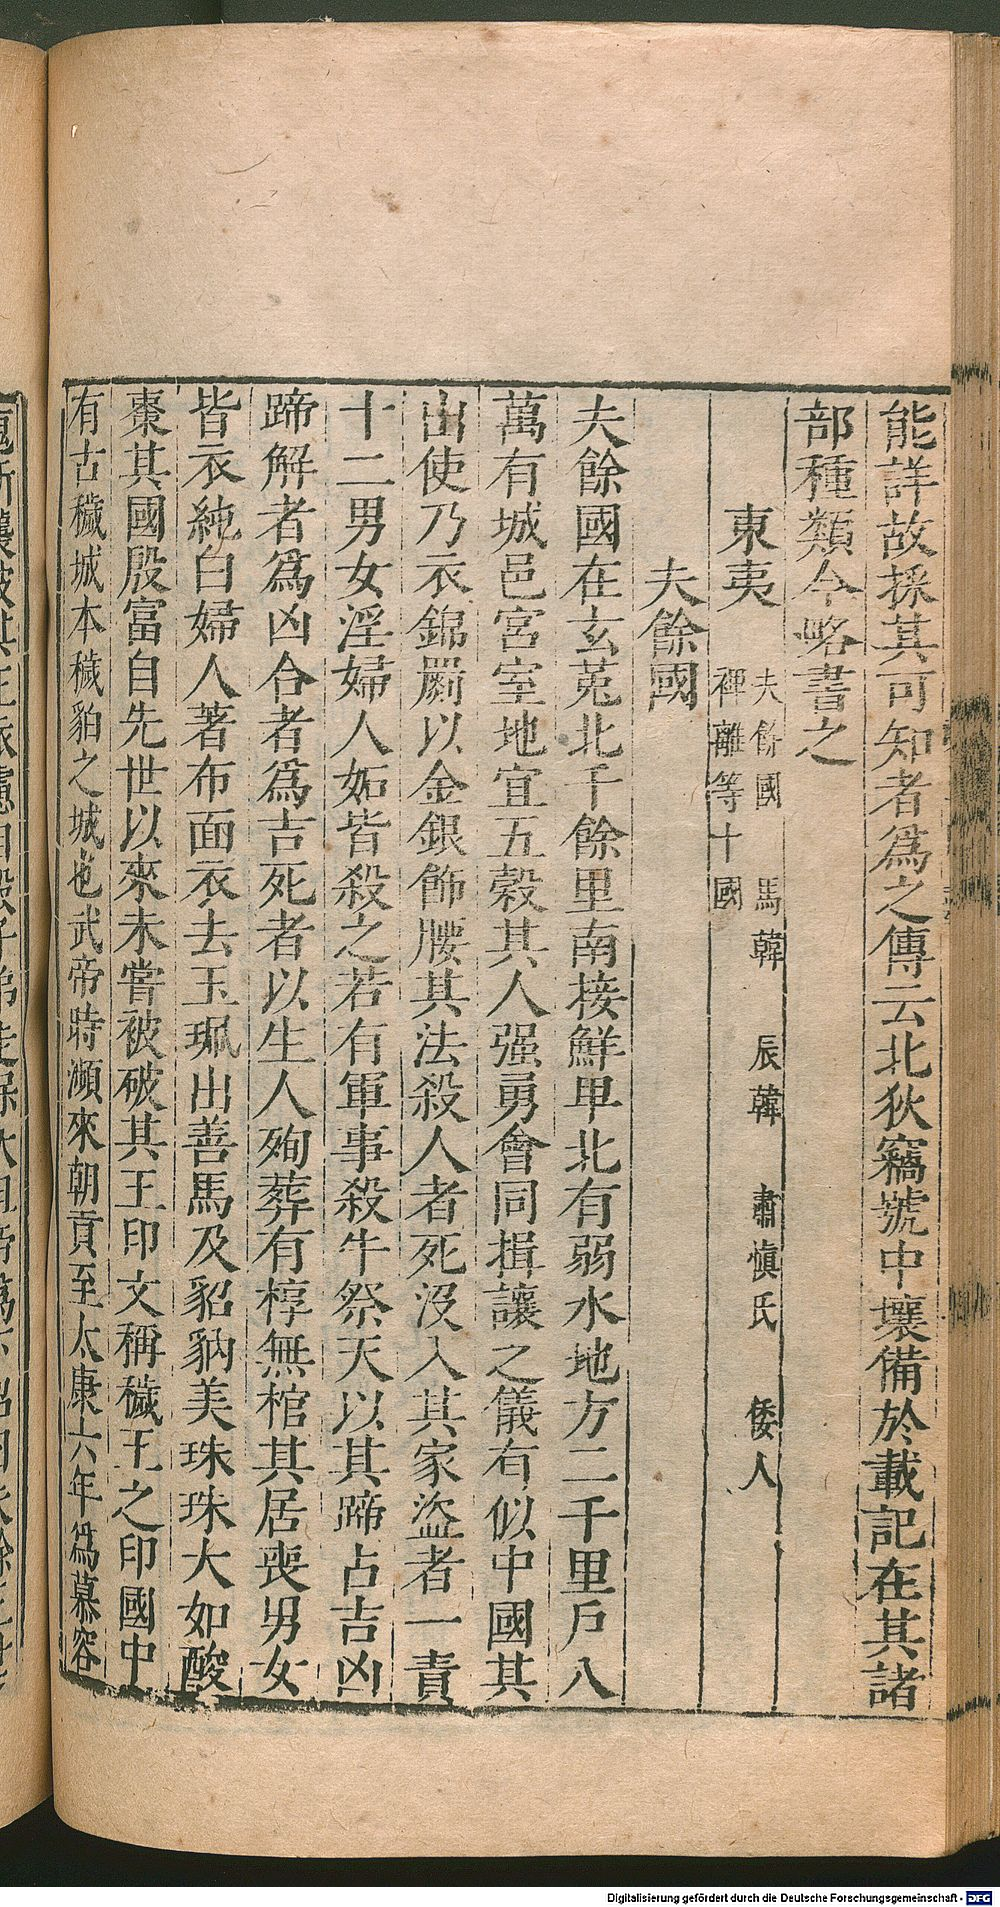 能詳故採其可知者爲之傳云北狄竊號中壤備於載記在其諸
部種類今略書之
東夷 夫餘國 馬韓 辰韓 肅愼氏 倭人
裨離等十國
夫餘國
夫餘國在玄菟北千餘里南接鮮卑北有弱水地方二千里戶八
萬有城邑宮室地宜五穀其人强勇會同揖讓之儀有似中國其
出使乃衣錦罽以金銀飾腰其法殺人者死沒入其家盜者一責
十二男女淫婦人妬皆殺之若有軍事殺牛祭天以其蹄占吉凶
蹄解者爲凶合者爲吉死者以生人殉葬有椁無棺其居喪男女
皆衣純白婦人著布面衣去玉珮出善馬及貂豽美珠珠大如酸
棗其國殷富自先世以來未嘗被破其王印文稱穢王之印國中
有古穢城本穢貊之城也武帝時頻來朝貢至太康六年爲慕容
Digitalisierung gefördert durch die Deutsche Forschungsgemeinschaft - DFG